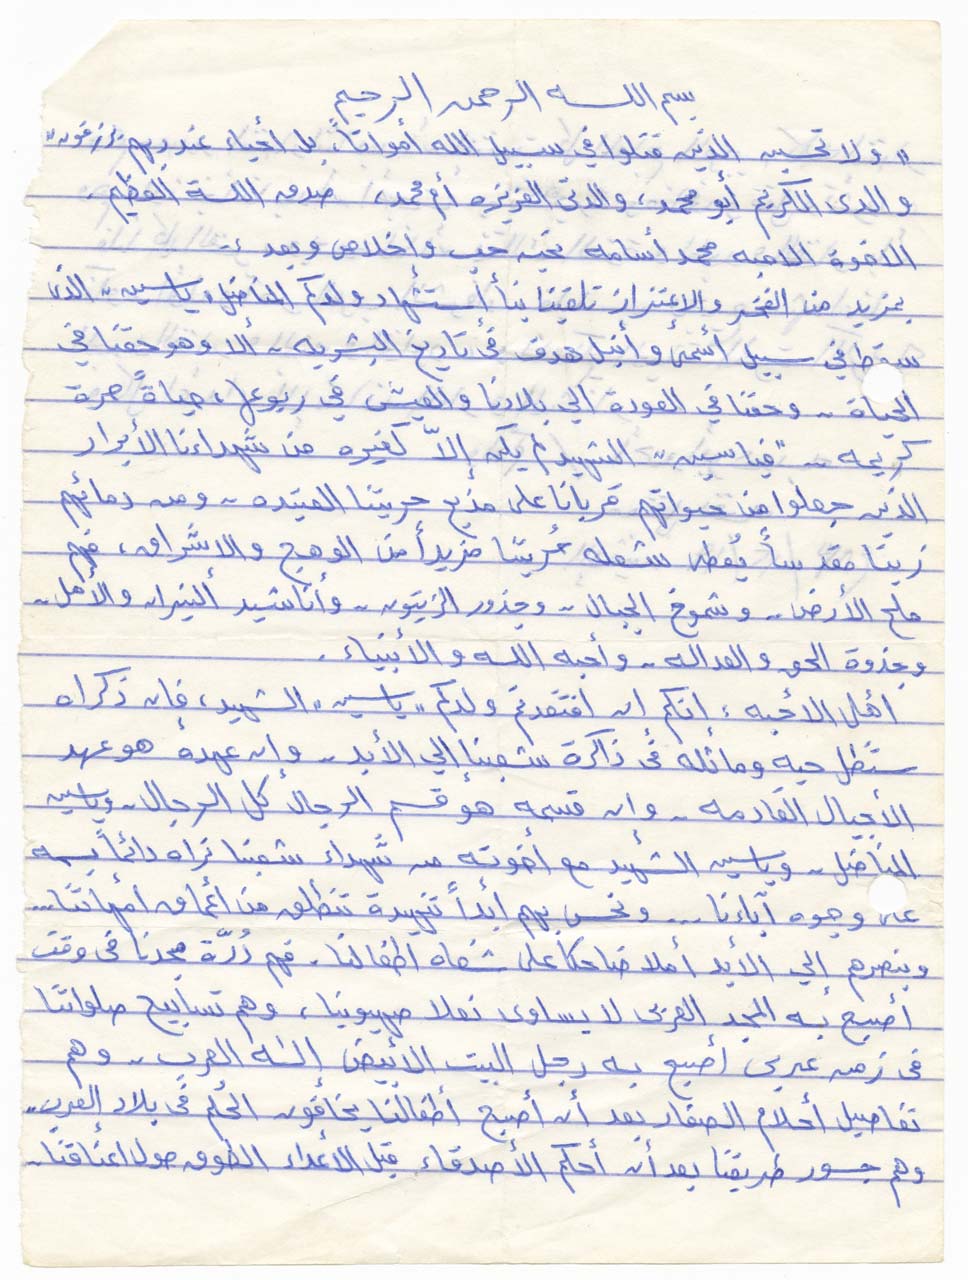 بسم اللـــه الرحمن الرحيم
" ولا تحسبن الذين قتلوا في سبيل الله أمواتاً، بل أحياء عند ربهم يرزقون "
والدى الكريم أبو محمد، والدتى العزيزه أم محمد، صدق اللـه العظيم.
الاخوة الاحبه محمد أسامه تحيه حب واخلاص وبعد :-
بمزيد من الفخر والاعتزاز تلقينا نبأ أستشهاد ولدكم المناضل " ياسين " الذى
سقط في سبيل أسمى وأنبل هدف فى تاريخ البشريه - ألا وهو حقنا في
الحياة - وحقنا في العودة الي بلادنا والعيش في ربوعها، حياةً حرة
كريمه - " فياسين " الشهيد لم يكن إلاّ كغيره من شهداءنا الأبرار
الذين جعلوا من حيواتهم قرباناً على مذبح حريتنا العتيده - ومن دمائهم
زيتاً مقدساً يُعطى شعله عُرسنا مزيداً من الوهج والاشراق، فهم
ملح الأرض - وشموخ الجبال - وجذور الزيتون - وأناشيد النيران والأمل -
وجذوة الحق والعداله - وأحبه اللـه والأنبياء.
أهل الاحبه، انكم ان افتقدتم ولدكم " ياسين " الشهيد، فإن ذكراه
ستظل حيه وماثله فى ذاكرة شعبنا الي الأبد - وان عهده هو عهد
الأجيال القادمه - وان قسمه هو قسم الرجال كل الرجال - وياسين
المناضل - وياسين الشهيد مع أخوته من شهداء شعبنا نراه دائماً بسمه
على وجوه آباءنا ... ونحس بهم أبداً تنهيدة تنطلق من اعماق امهاتنا...
ونبصرهم الي الأبد أملا ضاحكا على شفاه اطفالنا - فهم دُرّة مجدنا فى وقت
أصبح به المجد العربى لا يساوى نعلا صهيونيا، وهم تسابيح صلواتنا
فى زمن عربى أصبح به رجل البيت الأبيض إله العرب - وهم
تفاصيل أحلام الصغار بعد أن أصبح أطفالنا يخافون الحلم فى بلاد العرب -
وهم جسور طريقنا بعد أن أحكم الأصدقاء قبل الأعداء الطوق حول اعناقنا -